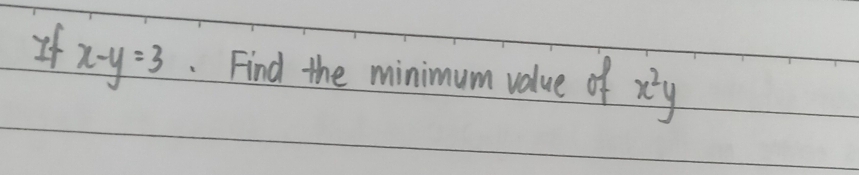 If x-y=3. Find the minimum value of x²y